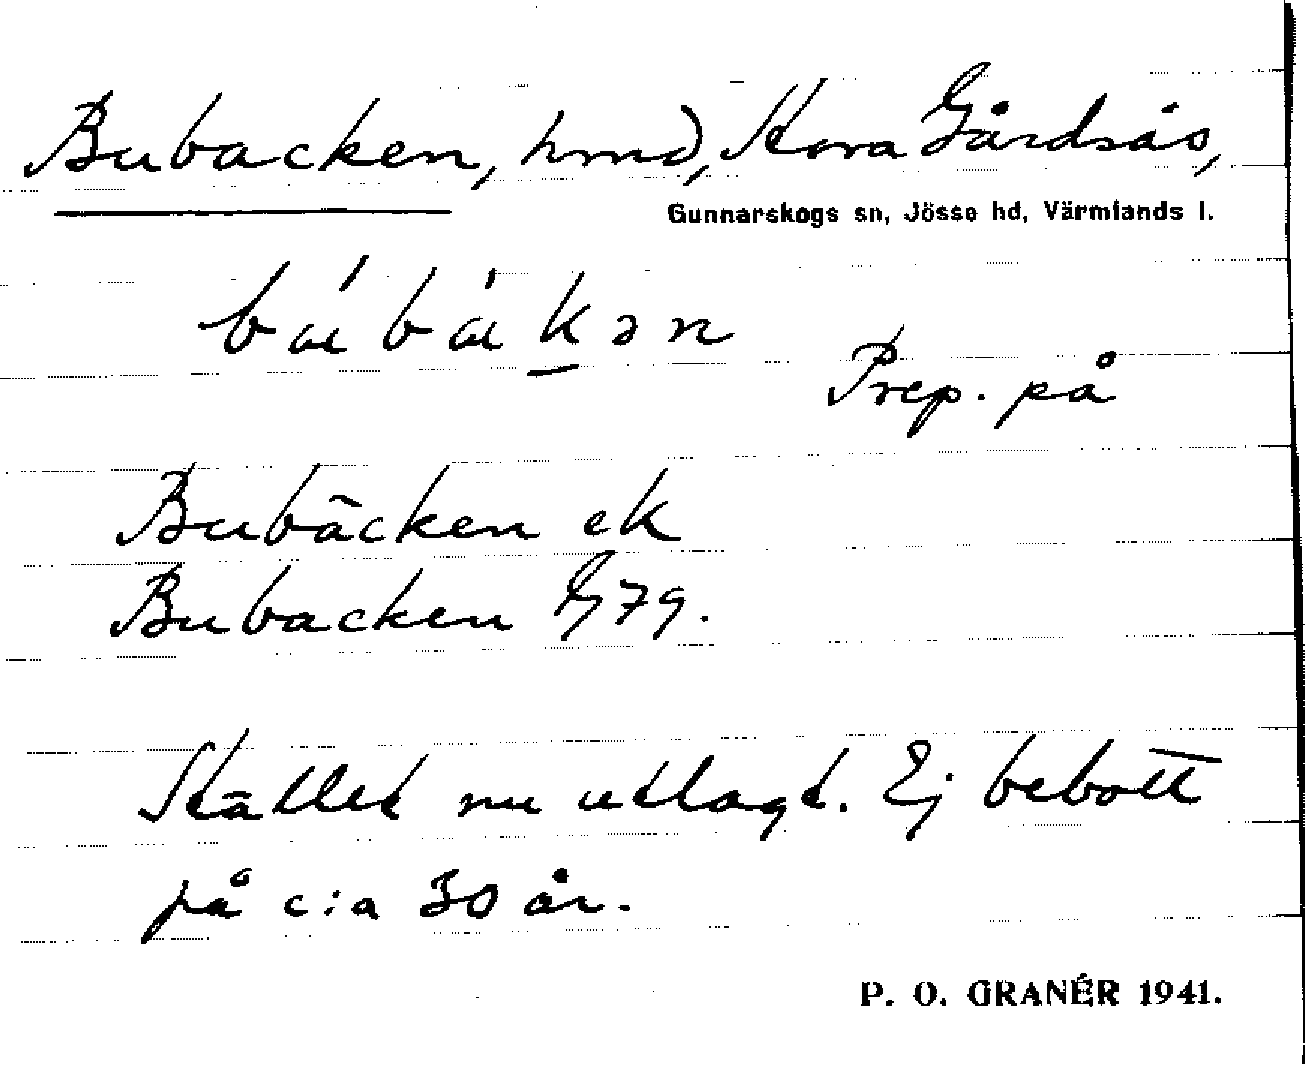 Bubacken, hmd, Stora Gårdsås,
Gunnarskogs sn, Jösse hd, Värmlands l.
Prep. på
Bubäcken ek
Bubacken G 79.
Stället nu utlagt. Ej bebott
på c:a 30 år.
P. O. GRANÉR 1941.